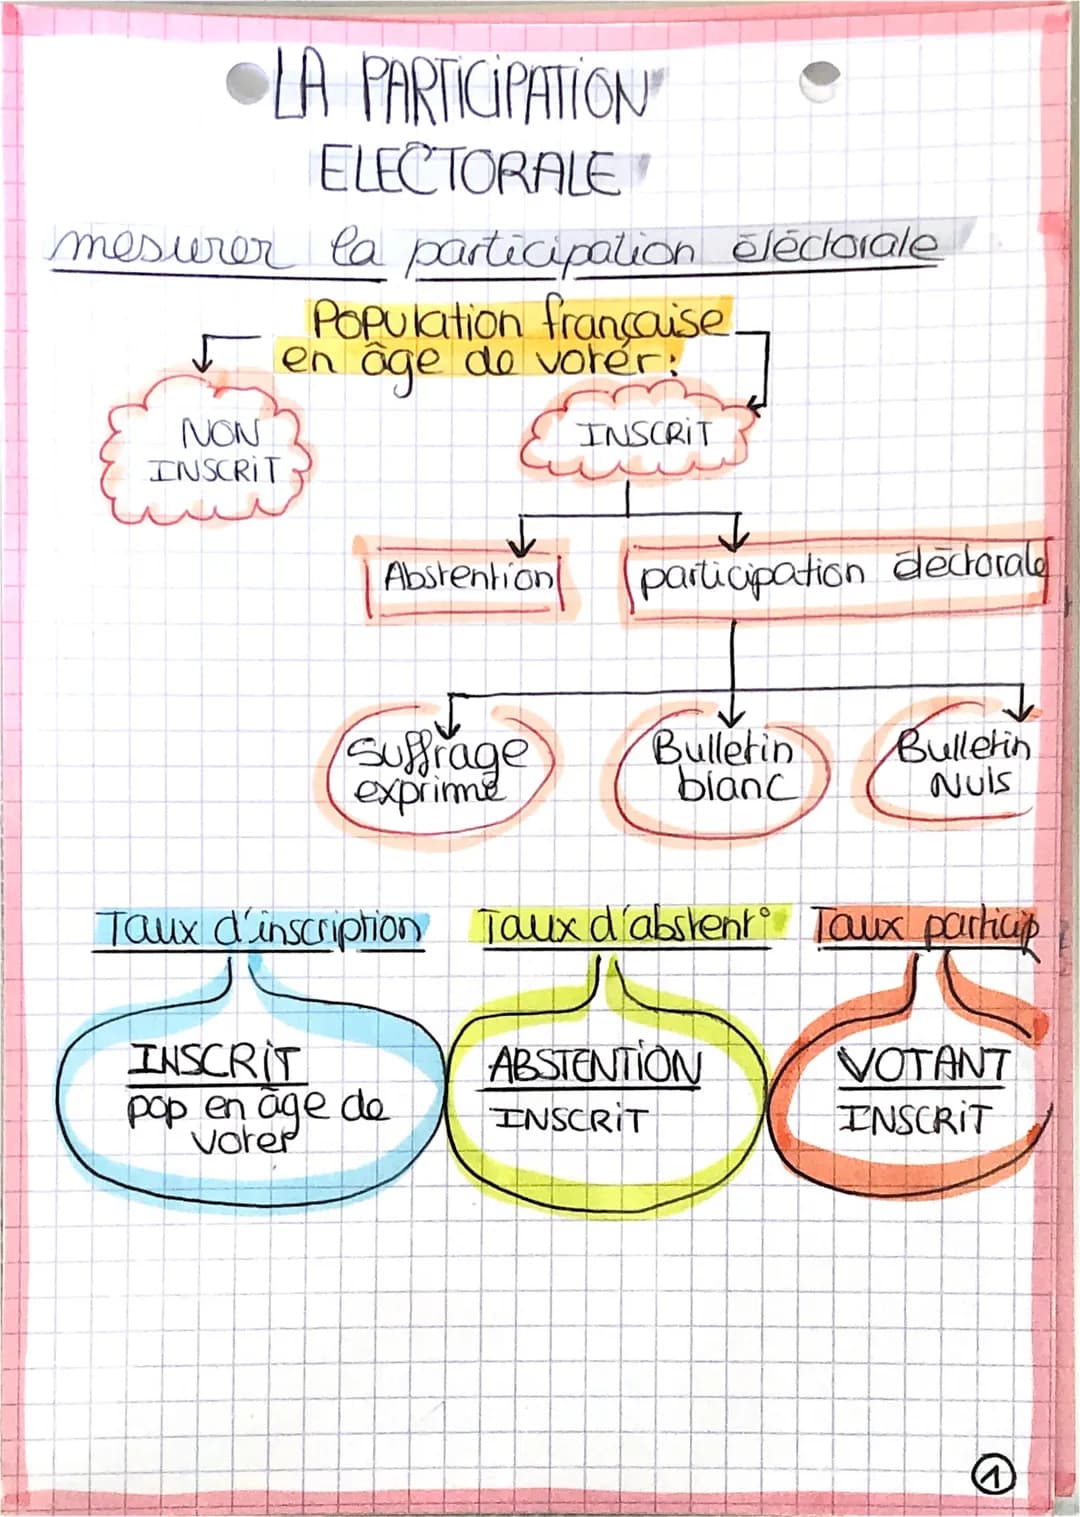 LA PARTICIPATION
ELECTORALE
mesurer la participation éléctorale
Population française
en âge de voter:
NON
INSCRIT
INSCRIT
Abstention
participation éléctorale
Suffrage
exprimé
Bulletin
blanc
Bulletin
Nuls
Taux d'inscription
Taux d'abstent°
Taux particip
INSCRIT
pop en âge de
voter
ABSTENTION
INSCRIT
VOTANT
INSCRIT
1